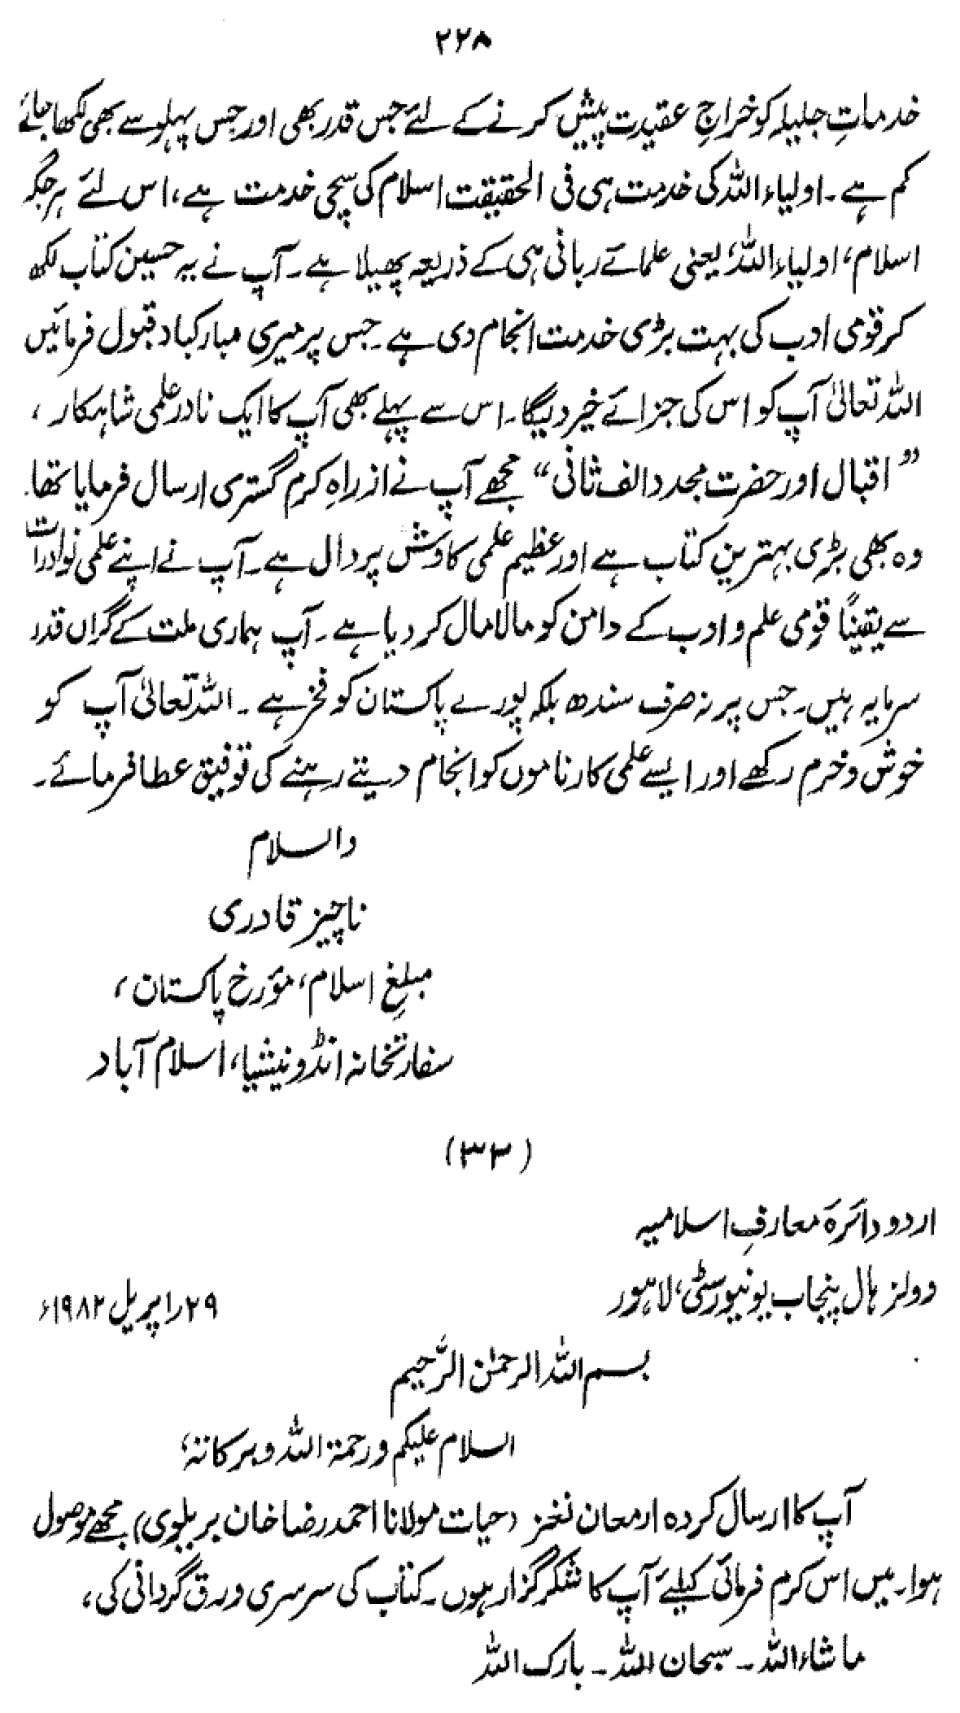 ۲۲۸
خدماتِ جلیلہ کو خراجِ عقیدت پیش کرنے کے لئے جس قدر بھی اور جس پہلو سے بھی لکھا جائے
کم ہے۔ اولیاء اللہ کی خدمت ہی فی الحقیقت اسلام کی سچی خدمت ہے، اس لئے ہر جگہ
اسلام، اولیاء اللہ، یعنی علمائے ربانی ہی کے ذریعہ پھیلا ہے۔ آپ نے یہ حسین کتاب لکھ
کر قومی ادب کی بہت بڑی خدمت انجام دی ہے۔ جس پر میری مبارکباد قبول فرمائیں
اللہ تعالیٰ آپ کو اس کی جزائے خیر دیگا۔ اس سے پہلے بھی آپ کا ایک نادر علمی شاہکار،
”اقبال اور حضرت مجدد الف ثانی“ مجھے آپ نے از راہِ کرم گستری ارسال فرمایا تھا۔
وہ بھی بڑی بہترین کتاب ہے اور عظیم علمی کاوش پر دال ہے۔ آپ نے اپنے علمی نوادرات
سے یقیناً قومی علم و ادب کے دامن کو مالا مال کر دیا ہے۔ آپ ہماری ملت کے گراں قدر
سرمایہ ہیں۔ جس پر نہ صرف سندھ بلکہ پورے پاکستان کو فخر ہے۔ اللہ تعالیٰ آپ کو
خوش و خرم رکھے اور ایسے علمی کارناموں کو انجام دیتے رہنے کی توفیق عطا فرمائے۔
والسلام
ناچیز قادری
مبلغِ اسلام، مؤرخ پاکستان،
سفارتخانہ انڈونیشیا، اسلام آباد
(۳۲)
اردو دائرہ معارفِ اسلامیہ
وولز ہال پنجاب یونیورسٹی، لاہور
۲۹/اپریل ۱۹۸۲ء
بسم اللہ الرحمٰن الرَّحیم
السلام علیکم ورحمۃ اللہ وبرکاتہٗ
آپ کا ارسال کردہ ارمعان نغز (حیات مولانا احمد رضا خان بریلوی) مجھے موصول
ہوا۔ میں اس کرم فرمائی کیلئے آپ کا شکر گزار ہوں۔ کتاب کی سرسری ورق گردانی کی،
ماشاء اللہ۔ سبحان اللہ۔ بارک اللہ